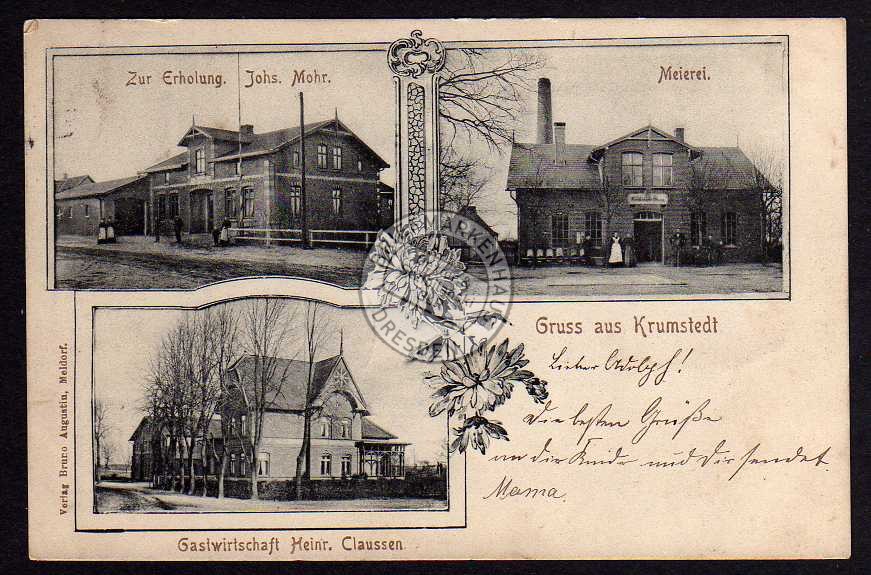 Zur Erholung. Johs. Mohr.
Meierei.
Gruss aus Krumstedt
Lieber Adolph!
Die besten Grüße
an die Kinder und Dir sendet
Mama.
Verlag Bruno Augustin, Meldorf.
Gastwirtschaft Heinr. Claussen
MARKENHAUS
DRESDEN